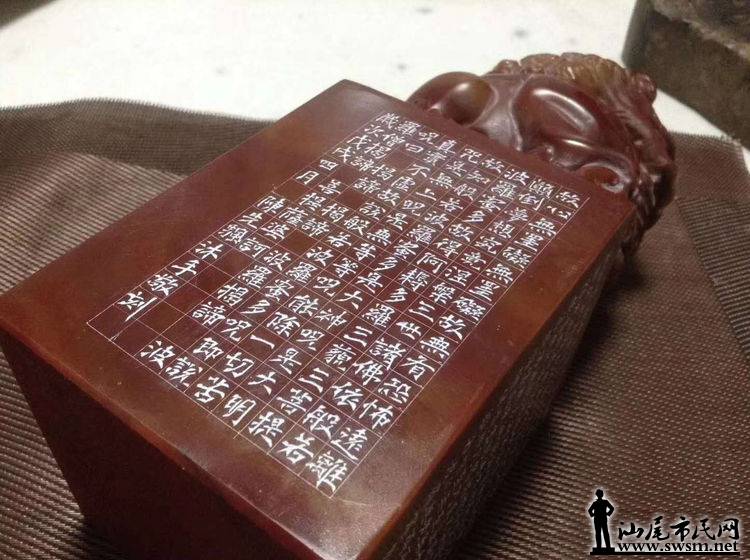 故心無罣礙無罣礙故無有恐怖遠離
顛倒夢想究竟涅槃三世諸佛依般若
波羅蜜多故得阿耨多羅三藐三菩提
故知般若波羅蜜多是大神咒是大明
咒是無上咒是無等等咒能除一切苦
真實不虛故說般若波羅蜜多咒即說
咒曰揭諦揭諦波羅揭諦波
羅僧揭諦菩提薩婆訶
歲次戊戌四月陳生沐手敬刻
汕尾市民网
www.swsm.net